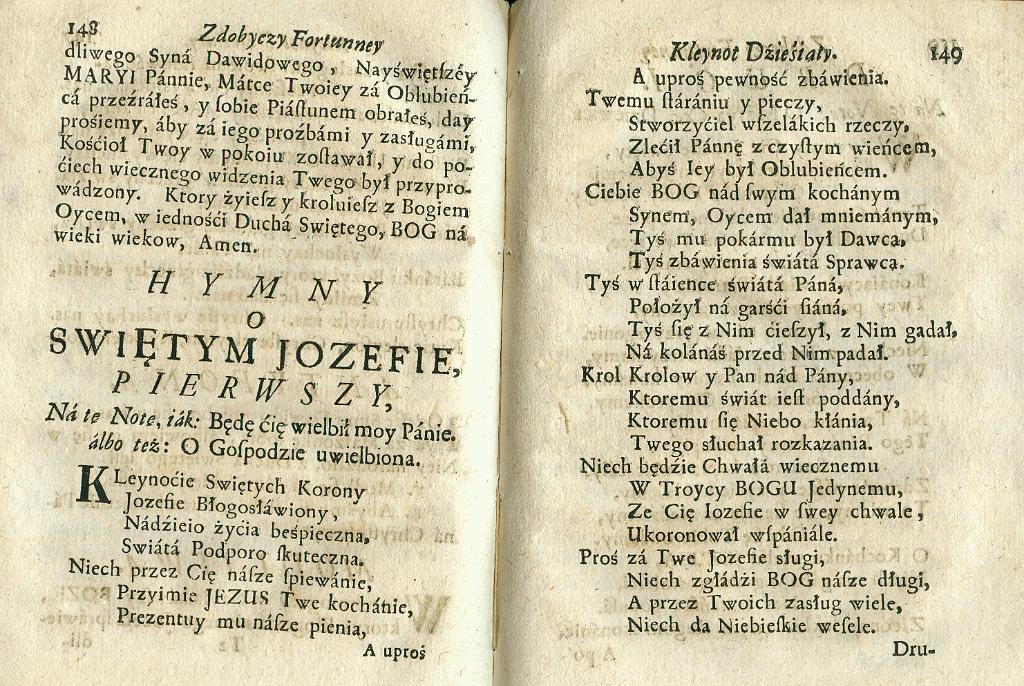 148 Zdobyczy Fortunney
dliwego Syná Dawidowego, Nayświętſzéy
MARYI Pánnie, Mátce Twoiey zá Oblubień-
cá przeźráłeś, y ſobie Piáſtunem obrałeś, day
prośiemy, áby zá iego proźbámi y zasługámi,
Kośćioł Twoy w pokoiu zoſtawał, y do po-
ćiech wiecznego widzenia Twego był przypro-
wádzony. Ktory żyieſz y kroluieſz z Bogiem
Oycem, w iednośći Duchá Swiętego, BOG ná
wieki wiekow, Amen.
HYMNY
O
SWIĘTYM JOZEFIE,
PIERWSZY,
Ná tę Notę, iák: Będę ćię wielbił moy Pánie.
álbo też: O Goſpodzie uwielbiona.
KLeynoćie Swiętych Korony
Jozefie Błogosłáwiony,
Nádźieio życia beśpieczna,
Swiátá Podporo ſkuteczna.
Niech przez Cię náſze ſpiewánie,
Przyimie JEZUS Twe kochánie,
Prezentuy mu náſze pienia,
A uproś
Kleynot Dźieśiąty. 149
A uproś pewność zbáwienia.
Twemu ſtáraniu y pieczy,
Stworzyćiel wſzelákich rzeczy,
Zlećił Pánnę z czyſtym wieńcem,
Abyś Iey był Oblubieńcem.
Ciebie BOG nád ſwym kochánym
Synem, Oycem dał mniemánym,
Tyś mu pokármu był Dawca,
Tyś zbáwienia świátá Sprawca.
Tyś w ſtáience świátá Páná,
Położył ná garśći śiáná,
Tyś ſię z Nim ćieſzył, z Nim gadał,
Ná kolánáś przed Nim padał.
Krol Krolow y Pan nád Pány,
Ktoremu świát ieſt poddány,
Ktoremu ſię Niebo kłánia,
Twego słuchał rozkazania.
Niech będźie Chwałá wiecznemu
W Troycy BOGU Jedynemu,
Ze Cię Iozefie w ſwey chwale,
Ukoronował wſpániále.
Proś zá Twe Jozefie sługi,
Niech zgłádźi BOG náſze długi,
A przez Twoich zasług wiele,
Niech da Niebieſkie weſele.
Dru-